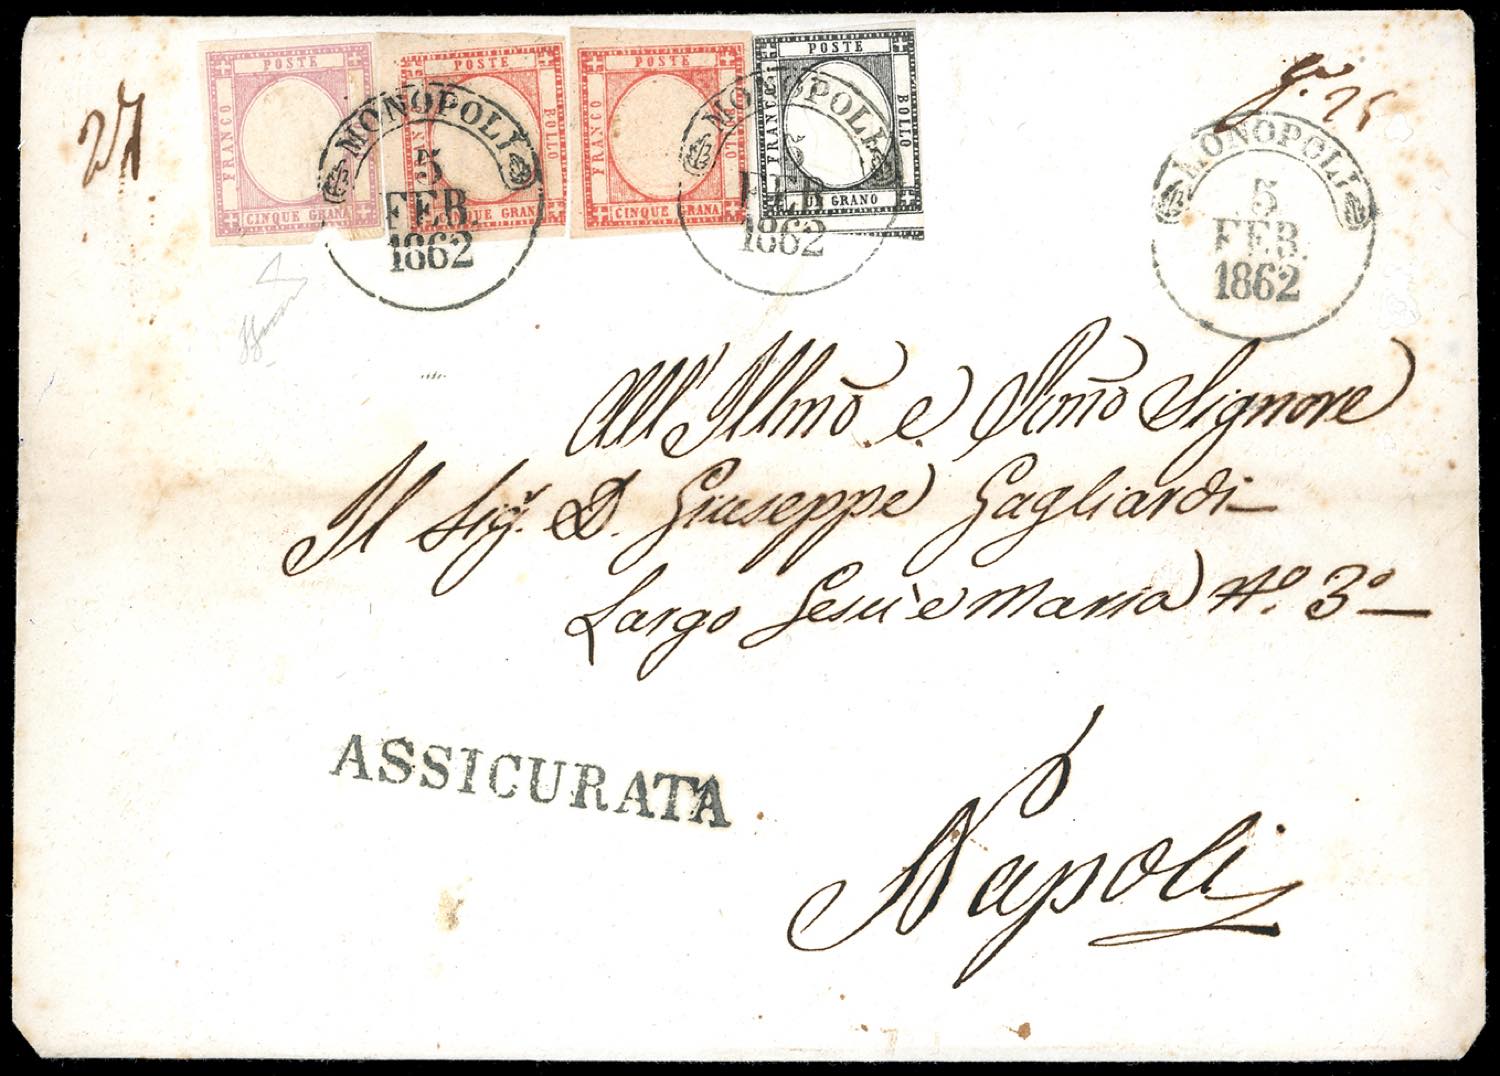 POSTE
FRANCO
CINQUE GRANA
POSTE
BOLLO
POSTE
FRANCO
BOLLO
CINQUE GRANA
POSTE
FRANCO
BOLLO
UN GRANO
MONOPOLI
5
FEB.
1862
MONOPOLI
5
FEB.
1862
MONOPOLI
5
FEB.
1862
All' Illmo e Signore
Il Sigr. D. Giuseppe Gagliardi
Largo Gesù e Maria No. 3o
ASSICURATA
Napoli